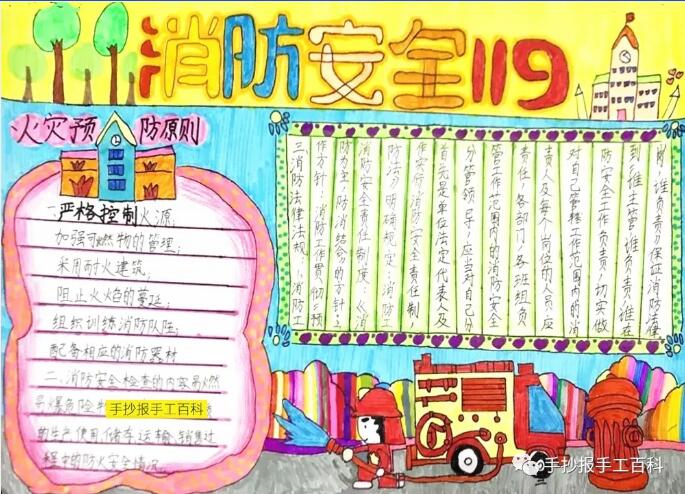 消防安全119
火灾预防原则
一、严格控制火源,
加强可燃物的管理,
采用耐火建筑,
阻止火焰的蔓延;
组织训练消防队阵;
配备相应的消防器材
二、消防安全检查的内容易燃
易爆危险物
手抄报手工百科
的生产使用储存运输销售过
程中的防火安全情况。
三消防法律法规:1消防工
作方针,消防工作贯彻预
防为主,防消结合的方针2
消防安全责任制度《消
防法》明确规定,消防工
作实行消防安全责任制,
首先是单位法定代表人及
分管领导,应当对自己分
管工作范围内的消防安全
责任,各部门、各班组负
责人及每个岗位的人员应
对自己管辖工作范围内的消
防安全工作负责,切实做
到"谁主管谁负责,谁在
岗,谁负责"保证消防法律
手抄报手工百科